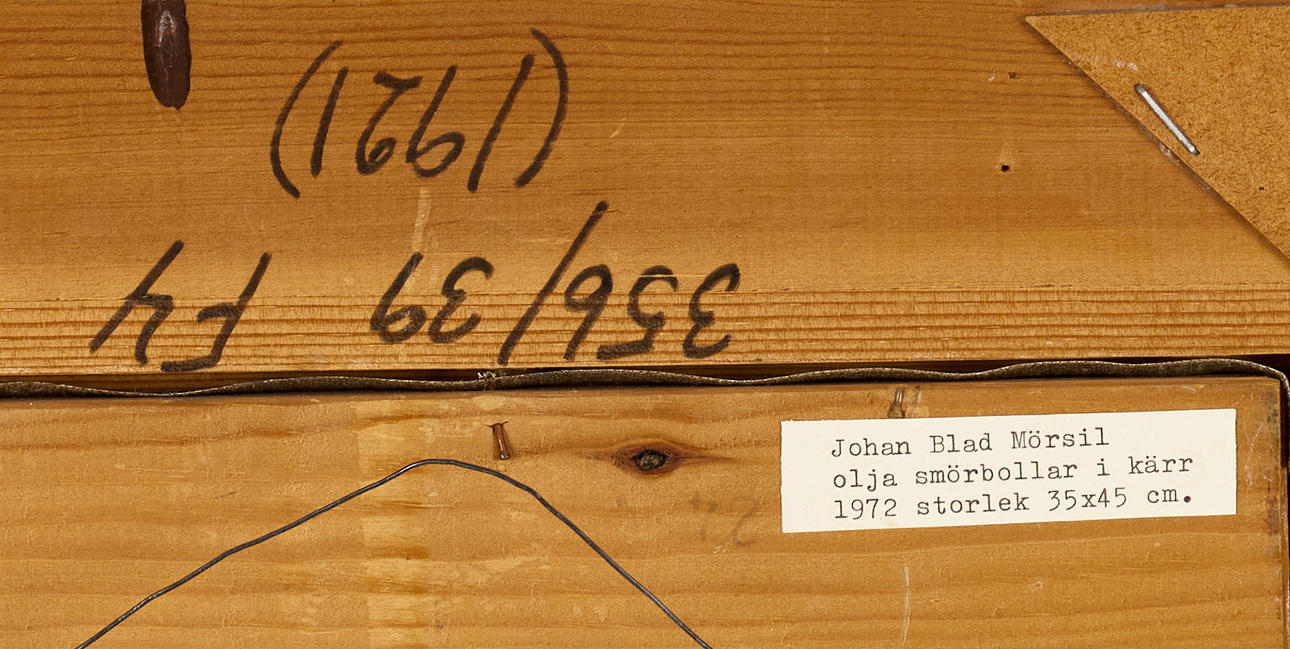 356/39 F4
(1921)
Johan Blad Mörsil
olja smörbollar i kärr
1972 storlek 35x45 cm.